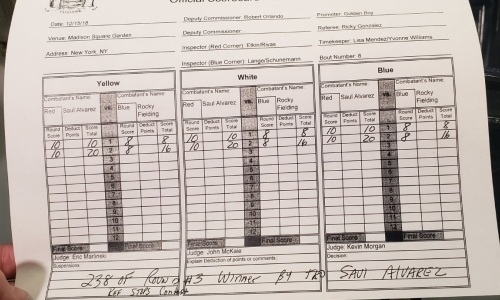 Official Scorecard
Date: 12/15/18
Deputy Commissioner: Robert Orlando
Promoter: Golden Boy
Venue: Madison Square Garden
Deputy Commissioner
Referee: Ricky Gonzalez
Address: New York, NY
Inspector (Red Corner): Elkin/Rivas
Timekeeper: Lisa Mendez/Yvonne Williams
Inspector (Blue Corner): Lange/Schunemann
Bout Number: 8
Yellow
White
Blue
Combatant's Name vs. Combatant's Name
Red Saul Alvarez Blue Rocky Fielding
Round Score Deduct Points Score Total Round Score Deduct Points Score Total
10 10 1 8 8
10 20 2 8 16
3
4
5
6
7
8
9
10
11
12
Final Score Final Score
Judge: Eric Marlinski
Combatant's Name vs. Combatant's Name
Red Saul Alvarez Blue Rocky Fielding
Round Score Deduct Points Score Total Round Score Deduct Points Score Total
10 10 1 8 8
10 20 2 8 16
3
4
5
6
7
8
9
10
11
12
Final Score Final Score
Judge: John McKaie
Combatant's Name vs. Combatant's Name
Red Saul Alvarez Blue Rocky Fielding
Round Score Deduct Points Score Total Round Score Deduct Points Score Total
10 10 1 8 8
10 20 2 8 16
3
4
5
6
7
8
9
10
11
12
Final Score Final Score
Judge: Kevin Morgan
Suspensions
Explain Deduction of points or comments:
Decision:
2:38 OF ROUND #3 WINNER BY TKO SAUL ALVAREZ
REF STOPS CONTEST